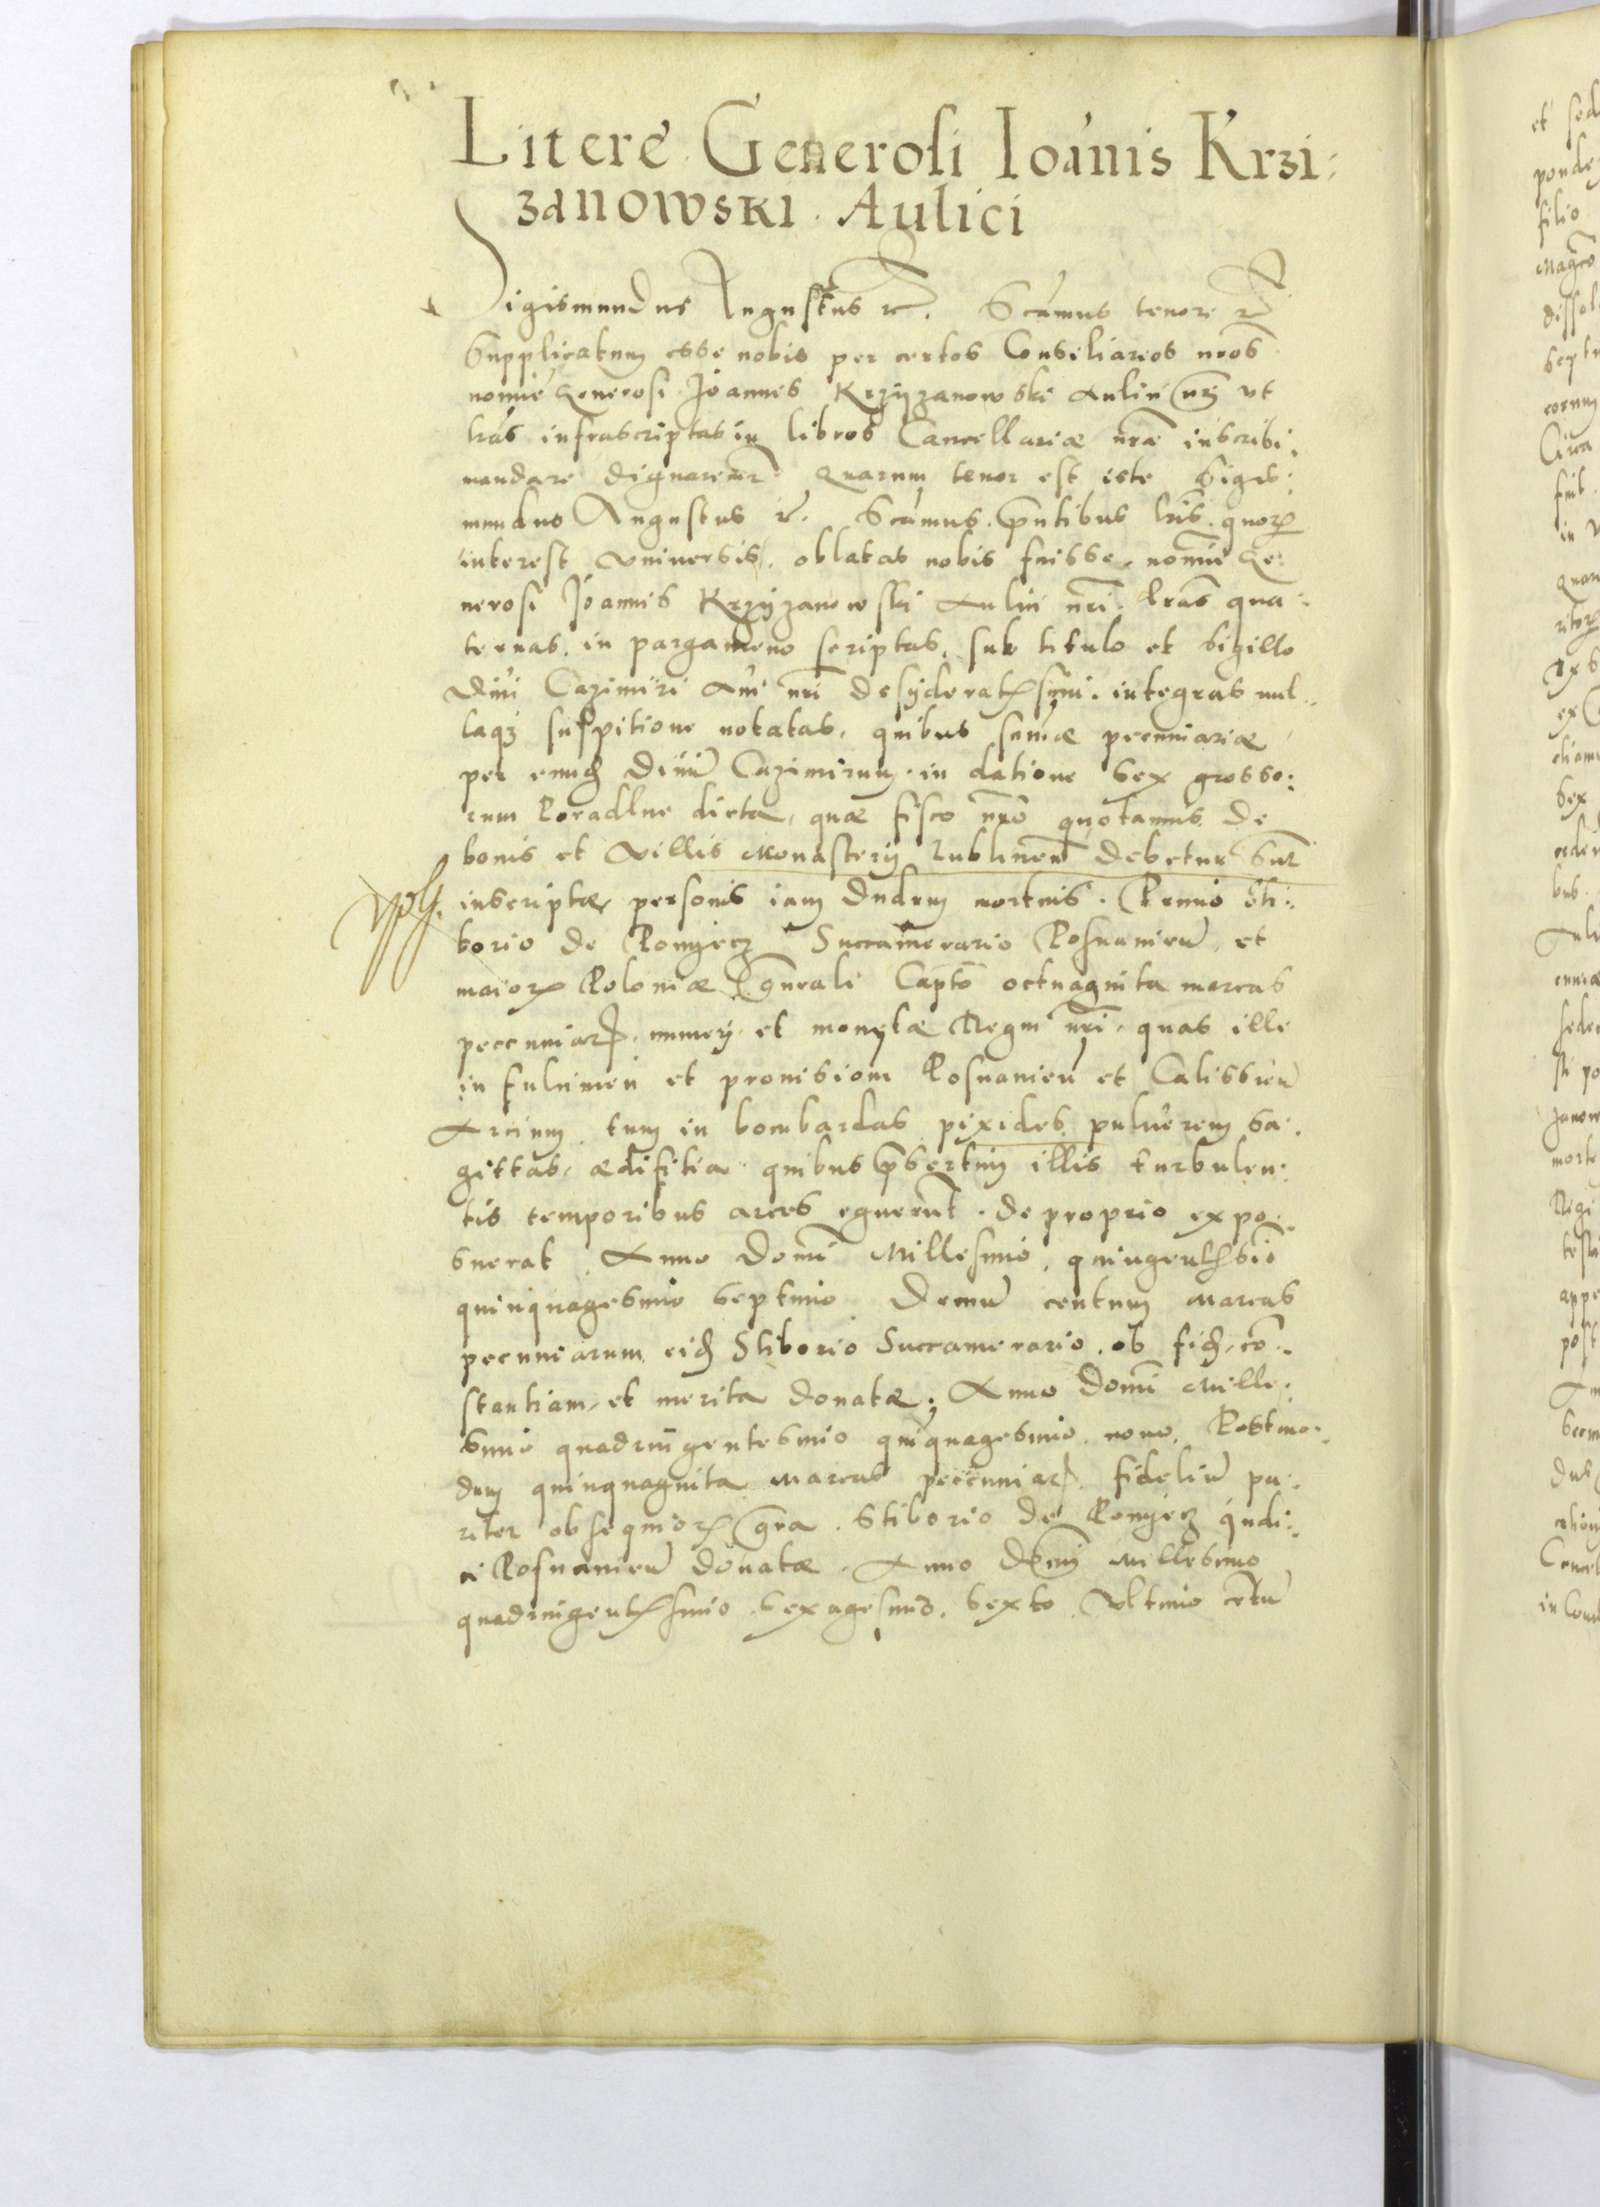 Litere Generosi Ioānis Krzi⸗
zanowski Aulici
Sigismundus Augustus etc. Scāmus tenore etc
Supplicatum esse nobis per certos Consiliarios nros
noīe Generosi Joannes Krzyzanowski Aulici nri vt
lras infrascriptas in libros Cancellariæ nræ inscribi
mandare dignaremr. Quarum tenor est iste Sigis⸗
mundus Augustus etc. Scāmus pntibus lris quorū
interest vniversis, oblatas nobis fuisse noīe Ge⸗
nerosi Joannis Krzyzanowski Aulici nri lras qua⸗
ternas in pargameno scriptas, sub titulo et sigillo
Divi Cazimiri Avi nri desyderatissimi integras nul⸗
laq3 suspitione notatas, quibus sum̄æ pecuniariæ
per eund Divū Cazimirum in datione sex grosso⸗
rum Poradlne dicta, quæ fisco nro quotannis de
bonis et villis Monasterij Lublinen debetur sūt
inscriptæ personis iam dudum mortuis. Primo Sti⸗
borio de Poniecz Succamerario Posnanien, et
maiorū Poloniæ gnrali Capto octuaginta marcas
pecuniarū numeri et monetæ Regni nri, quas ille
in fulcimen et provisiom Posnanien et Calissien
Arcium tum in bombardas pixides pulverem sa⸗
gittas, ædifitia quibus prsertim illis turbulen⸗
tis temporibus arces eguerūt de proprio expo⸗
suerat Anno Domi Millesimo, quingentesimo
quinquagesimo septimo Demū centum Marcas
pecuniarum eid Stiborio Succamerario ob fid, co⸗
stantiam, et merita donatæ, Anno Domi Mille⸗
simo quadringentesimo quīquagesimo nono. Postmo⸗
dum quinquaginta Marcas pecuniarū fideliū pa⸗
riter obsequiorū gra Stiborio de Poniecz iudi⸗
ci Posnanien donatæ Anno Domi Millesimo
quadringentesimo sexagesimo sexto Vltimo cētū